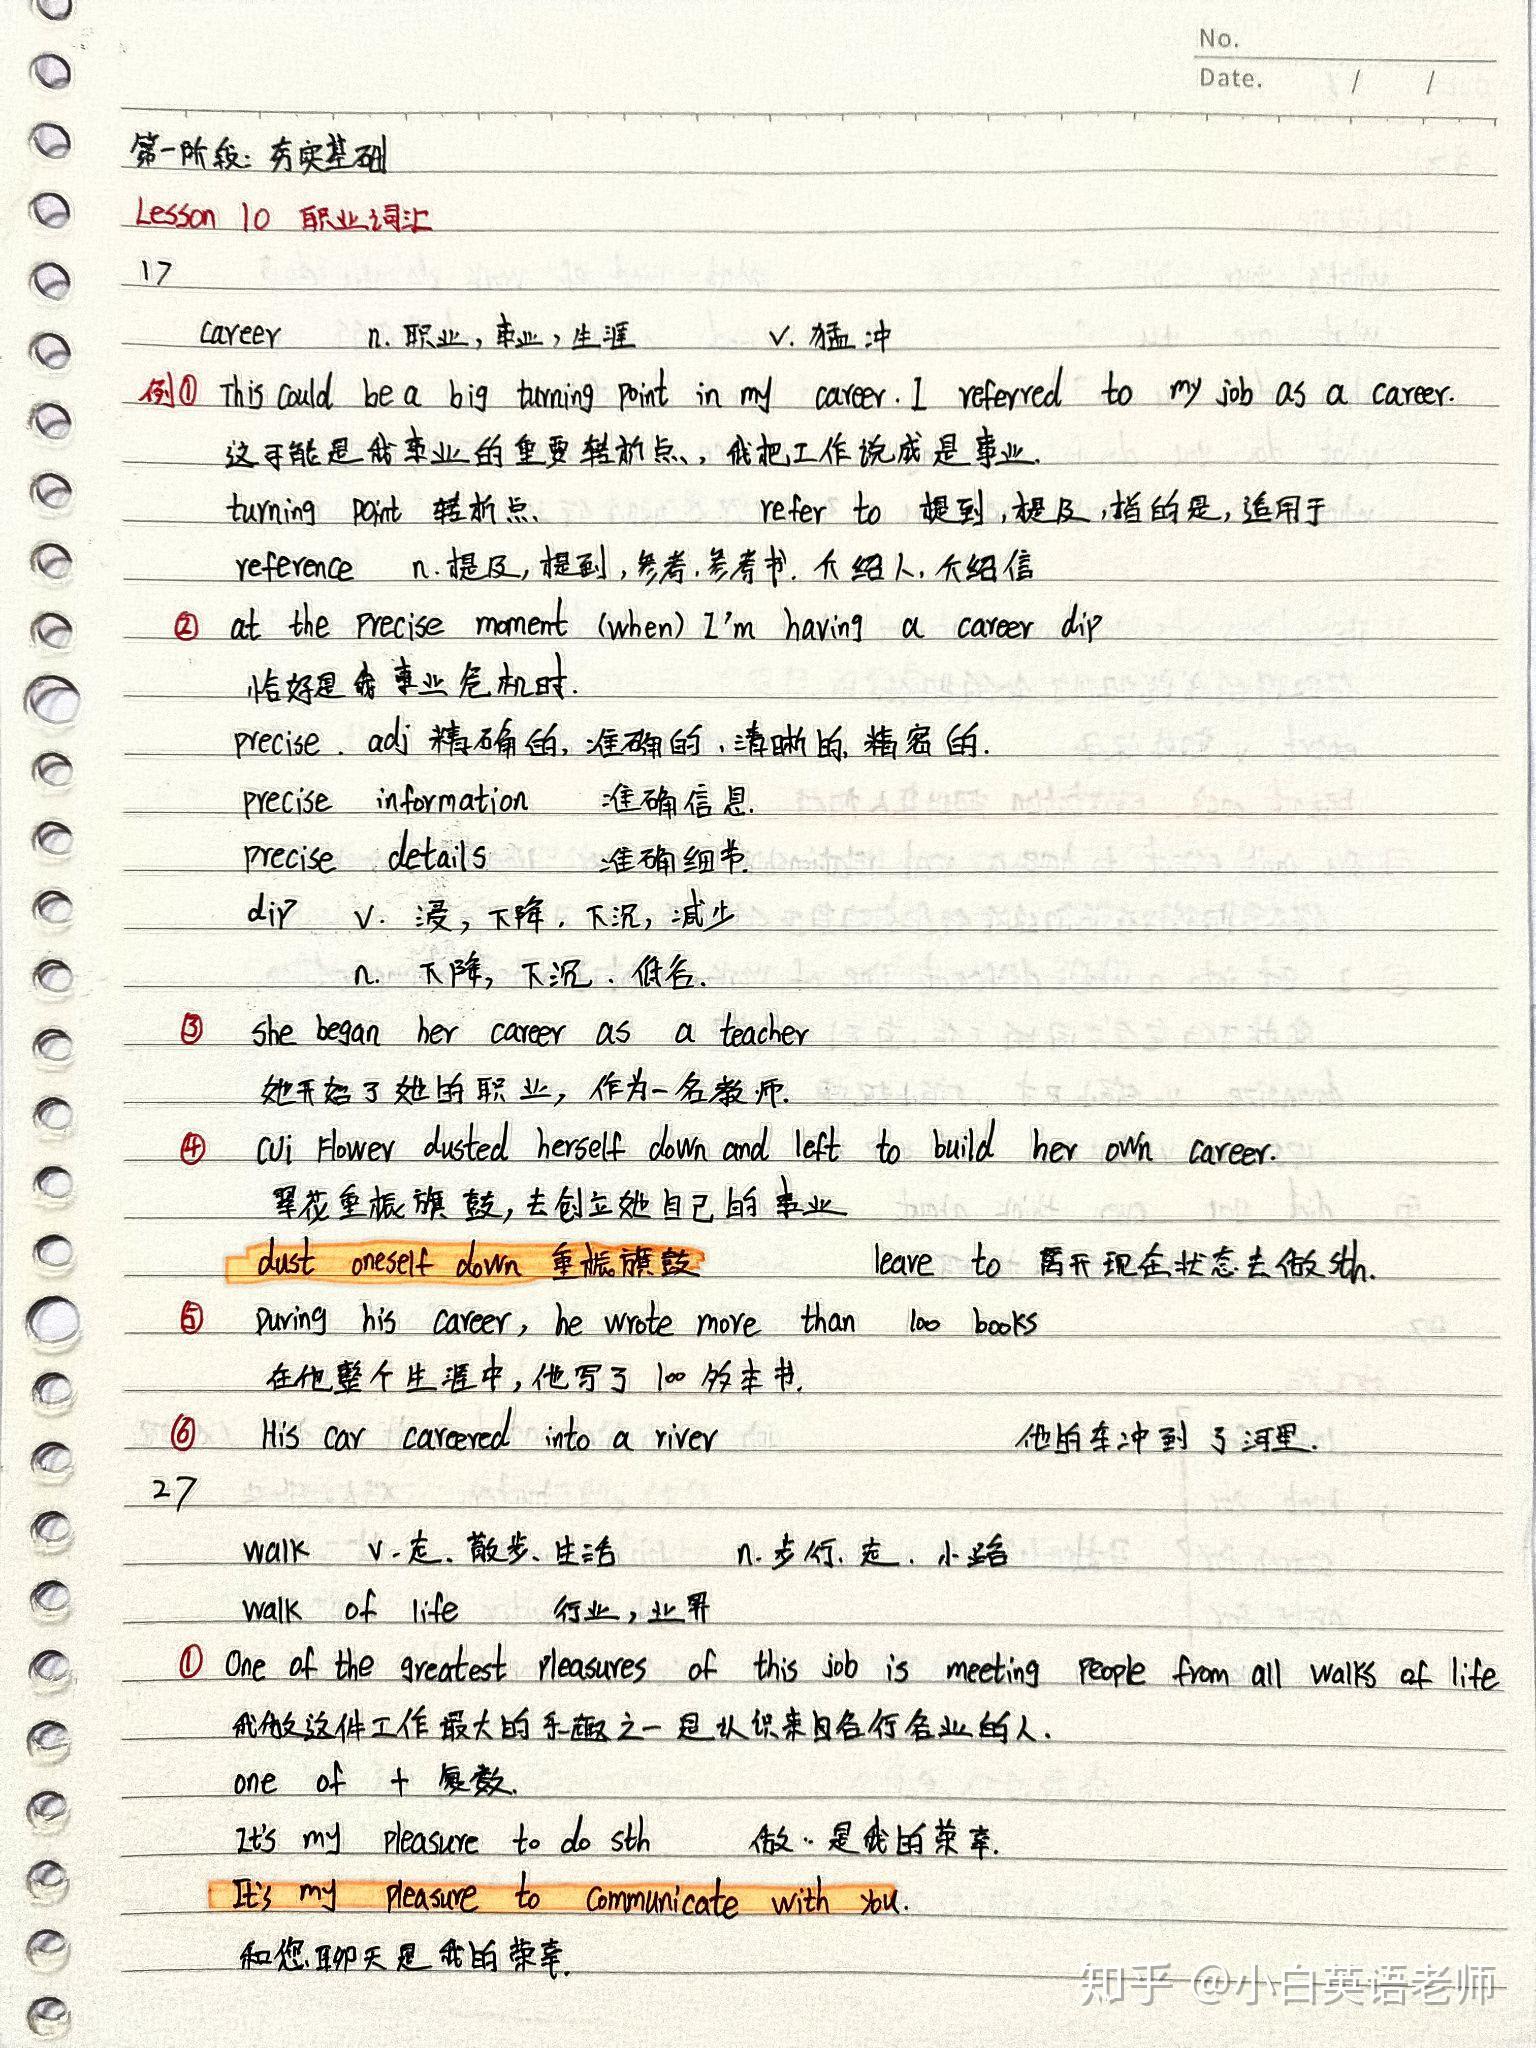 No.
Date. / /
第一阶段：夯实基础
Lesson 10 职业词汇
17
career n. 职业，事业，生涯 v. 猛冲
例① This could be a big turning point in my career. I referred to my job as a career.
这可能是我事业的重要转折点，我把工作说成是事业.
turning point 转折点. refer to 提到，提及，指的是，适用于
reference n. 提及，提到，参考，参考书，介绍人，介绍信
② at the precise moment (when) I'm having a career dip
恰好是我事业危机时.
precise . adj 精确的，准确的，清晰的，精密的.
precise information 准确信息.
precise details 准确细节.
dip v. 浸，下降，下沉，减少
n. 下降，下沉，低谷.
③ she began her career as a teacher
她开始了她的职业，作为一名教师.
④ Cui Flower dusted herself down and left to build her own career.
翠花重振旗鼓，去创立她自己的事业
dust oneself down 重振旗鼓 leave to 离开现在状态去做sth.
⑤ During his career, he wrote more than 100 books
在他整个生涯中，他写了100多本书.
⑥ His car careered into a river 他的车冲到了河里.
27
walk v. 走、散步、生活 n. 步行、走、小路
walk of life 行业，业界
① One of the greatest pleasures of this job is meeting people from all walks of life
我做这件工作最大的乐趣之一是认识来自各行各业的人.
one of + 复数.
It's my pleasure to do sth 做..是我的荣幸.
It's my pleasure to communicate with you.
和您聊天是我的荣幸.
知乎 @小白英语老师